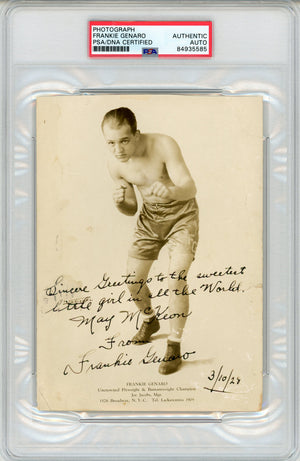 PHOTOGRAPH
FRANKIE GENARO
PSA/DNA CERTIFIED
AUTHENTIC
AUTO
84935585
PSA
Sincere Greetings to the sweetest
little girl in all the World.
May McKeon
From
Frankie Genaro
3/10/29
FRANKIE GENARO
Uncrowned Flyweight & Bantamweight Champion
Joe Jacobs, Mgr.
1928 Broadway, N. Y. C. Tel. Lackawanna